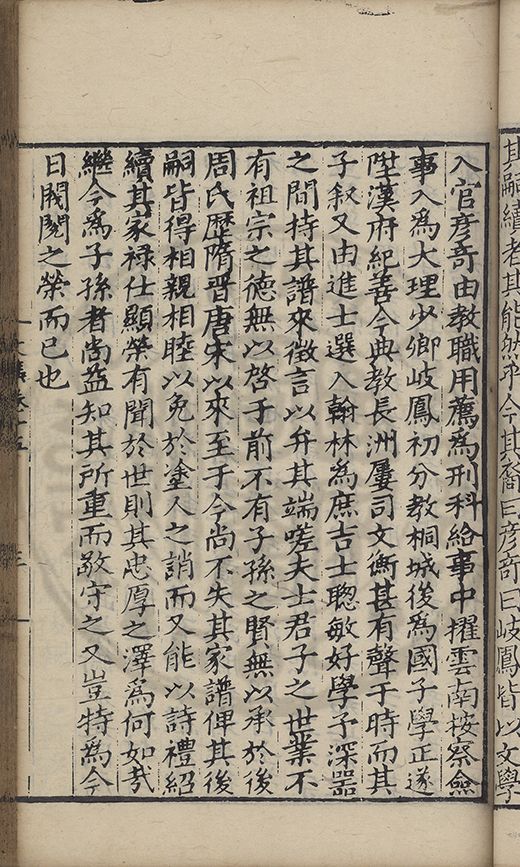 其嗣續者其能然乎今其裔曰彦奇曰岐鳳皆以文學
入官彦奇由教職用薦爲刑科給事中擢雲南按察僉
事入爲大理少卿岐鳳初分教桐城後爲國子學正遂
陞漢府紀善今典教長洲屢司文衡甚有聲于時而其
子叙又由進士選入翰林爲庶吉士聰敏好學予深器
之間持其譜來徵言以弁其端嗟夫士君子之世業不
有祖宗之德無以啓于前不有子孫之賢無以承於後
周氏歴隋晋唐宋以來至于今尚不失其家譜俾其後
嗣皆得相親相睦以免於塗人之誚而又能以詩禮紹
續其家禄仕顯榮有聞於世則其忠厚之澤爲何如㢤
繼今爲子孫者尚益知其所重而敬守之又豈特爲今
日閥閱之榮而已也
文集卷十五
三